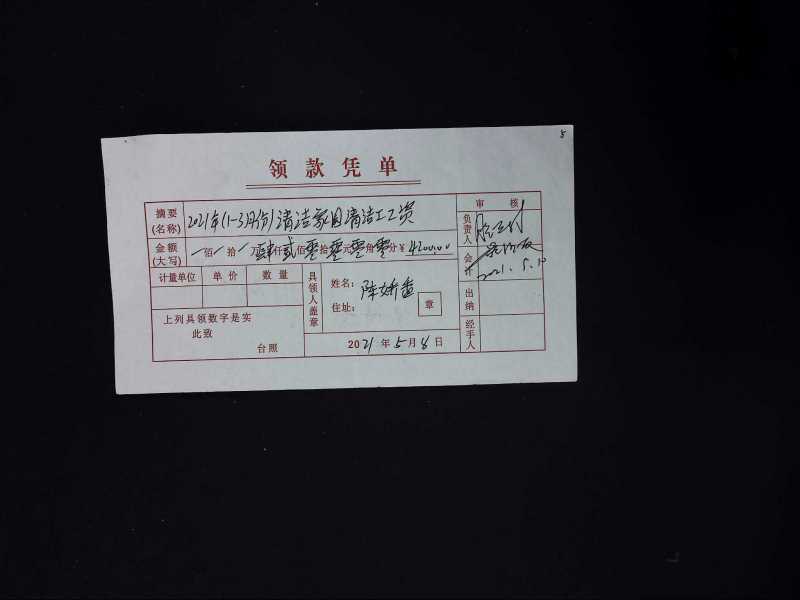 8
领款凭单
摘要(名称) 2021年(1-3月份)清洁家园清洁工工资
审核
金额(大写) 佰 拾 万肆仟贰佰零拾零元零角零分¥4200.00
负责人
会计
2021.5.10
计量单位 单价 数量
具领人盖章
姓名: 陈
住址:
章
出纳
上列具领数字是实
此致
台照
2021年5月8日
经手人